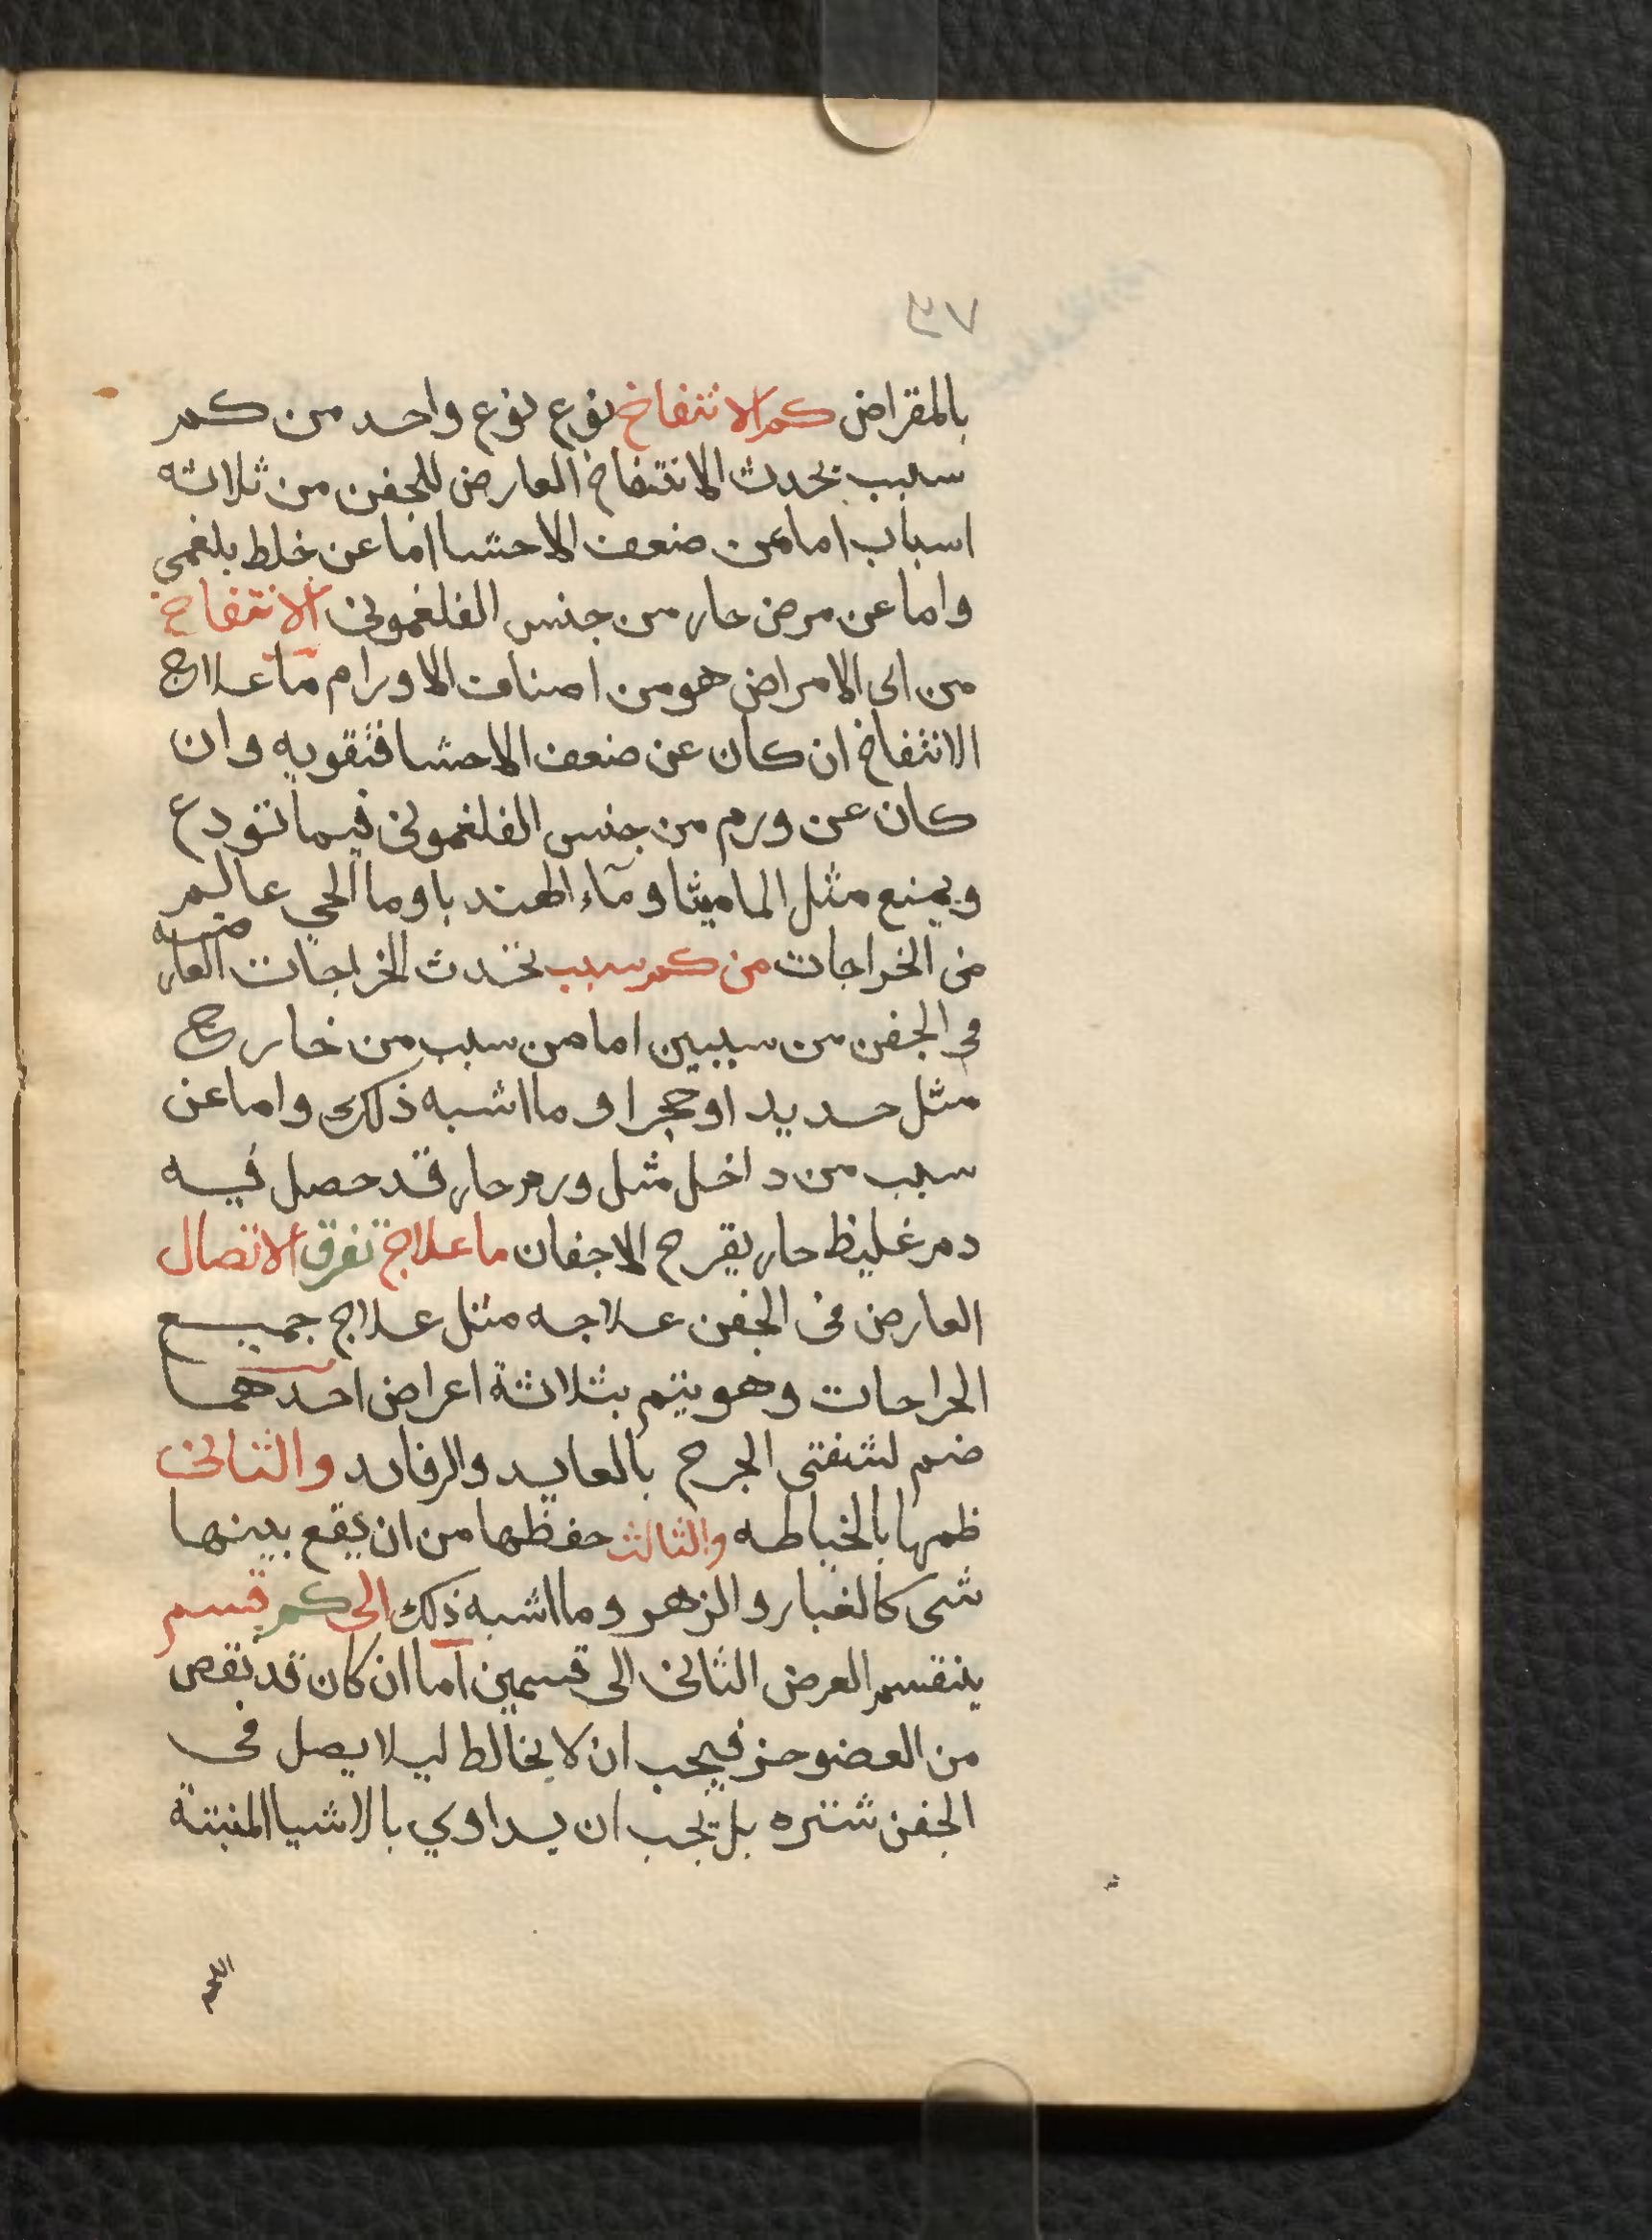 ٤٧
بالمقراض كم الانتفاخ نوع نوع واحد من كم
سبب يحدث الانتفاخ العارض للجفن من ثلاثه
اسباب اما من ضعف الاحشا اما عن خلط بلغمي
واما عن مرض حار من جنس الفلغموني الانتفاخ
من اي الامراض هو من اصناف الاورام ما علاج
الانتفاخ ان كان عن ضعف الاحشا فتقويه وان
كان عن ورم من جنس الفلغموني فيما تودع
ويمنع مثل الماميثا وماء الهندبا وما الحي عالم
في الخراجات من كم سبب تحدث الخراجات العارضه
في الجفن من سببين اما من سبب من خارج
مثل حديد او حجر او ما اشبه ذلك واما عن
سبب من داخل مثل ورم حار قد حصل فيه
دم غليظ حار يقرح الاجفان ما علاج تفرق الاتصال
العارض في الجفن علاجه مثل علاج جميع
الجراحات وهو يتم بثلاثة اعراض احدهما
ضم لشفتي الجرح بالعايد والرفايد والثاني
ظمها بالخياطه والثالث حفظها من ان يقع بينها
شى كالغبار والزهر وما اشبه ذلك الى كم قسم
ينقسم العرض الثاني الى قسمين اما ان كان قد نقص
من العضو جز فيجب ان لا يخالط ليلا يصل في
الجفن شتره بل يجب ان يداوي بالاشيا المنبتة
اللحم